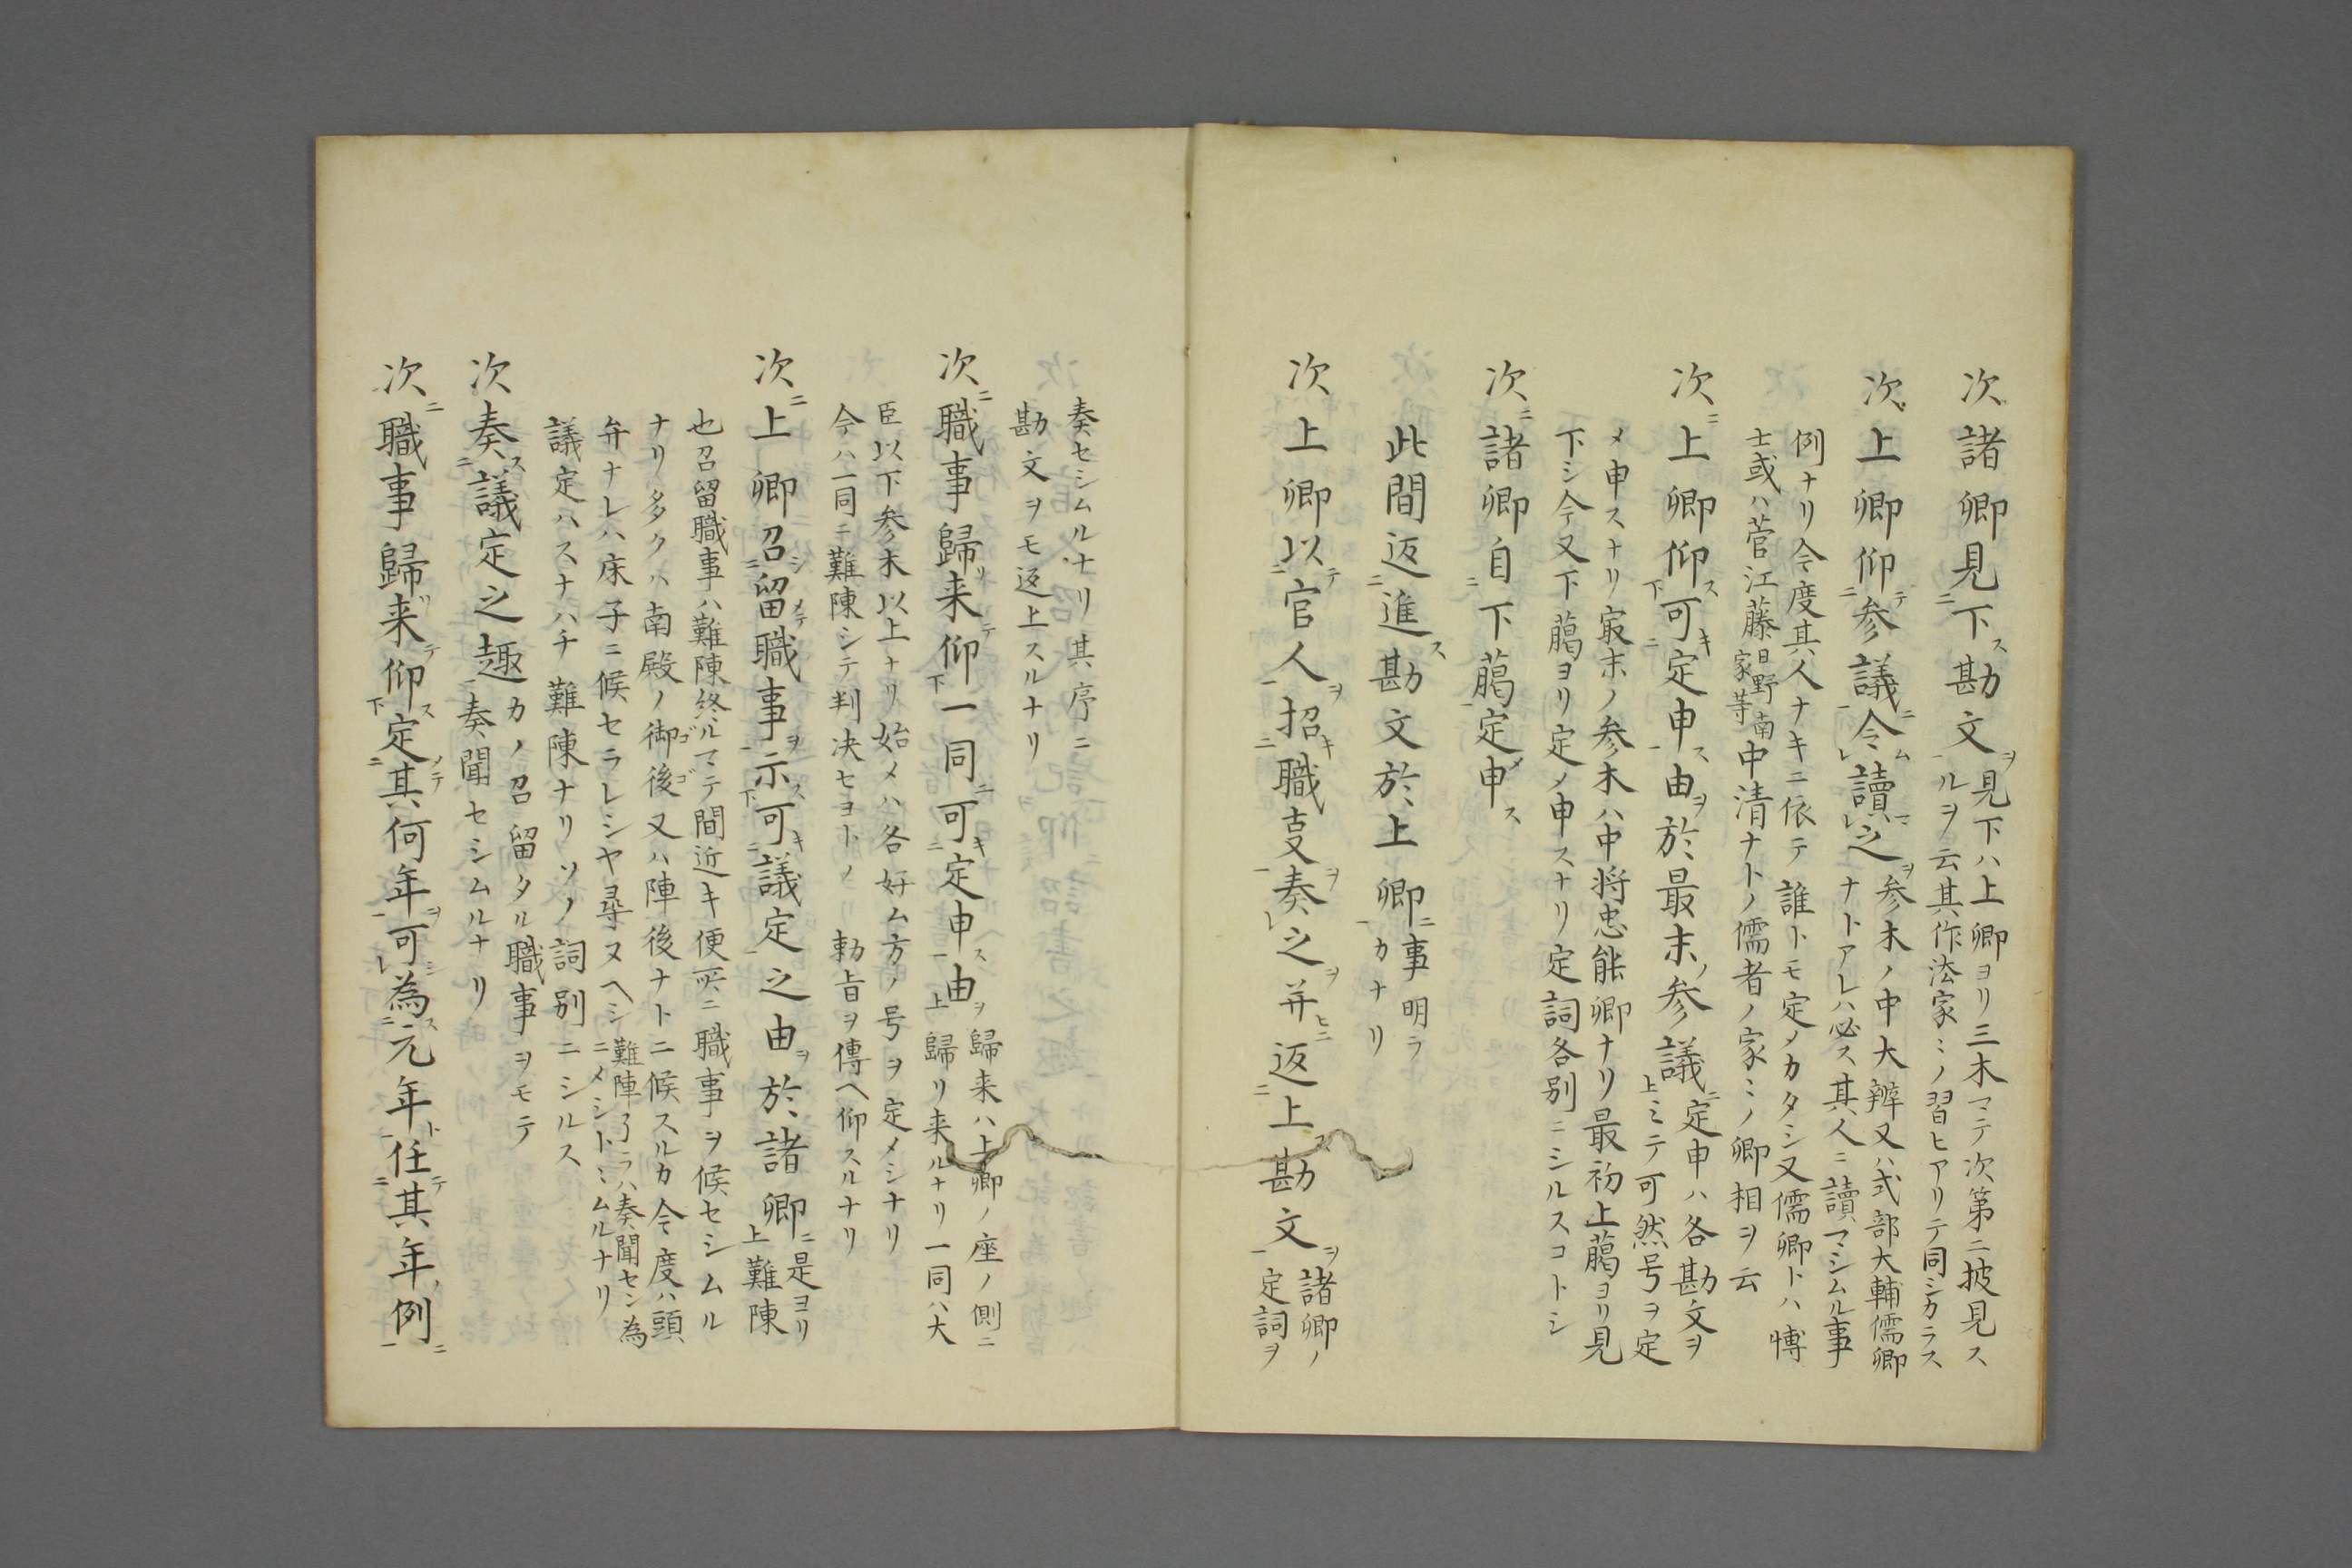 次諸卿見二下ス勘文ヲ一見下ハ上卿ヨリ三木マテ次第ニ披見ス
ルヲ云其作法家ミノ習ヒアリテ同シカラス
次上卿仰テ二参議ニ一令ムレ讀マレ之ヲ参木ノ中大辨又ハ式部大輔儒卿
ナトアレハ必ス其人ニ讀マシムル事
例ナリ今度其人ナキニ依テ誰トモ定メカタシ又儒卿トハ博
士或ハ菅江藤日野南家等中清ナトノ儒者ノ家ミノ卿相ヲ云
次ニ上卿仰ス下可キ二定申ス一由ヲ於最末ノ参議ニ上定申ハ各勘文ヲ
ミテ可然号ヲ定
メ申スナリ最末ノ参木ハ中将忠能卿ナリ最初上﨟ヨリ見
下シ今又下﨟ヨリ定メ申スナリ定詞各別ニシルスコトシ
次ニ諸卿自二下﨟一定メ申ス
此間返二進ス勘文於上卿ニ一事明ラ
カナリ
次上卿以テ二官人ヲ一招キ二職㕝ヲ一奏レ之ヲ并ヒニ返二上ス勘文ヲ一諸卿ノ
定詞ヲ
奏セシムルナリ其序ニ
勘文ヲモ返上スルナリ
次ニ職事歸リ来テ仰下一同ニ可キ二定申ス一由ヲ上歸来ハ上卿ノ座ノ側ニ
歸リ来ルナリ一同ハ大
臣以下参木以上ナリ始メハ各好ム方ノ号ヲ定メシナリ
今ハ一同ニ難陳シテ判決セヨトノ勅旨ヲ傳ヘ仰スルナリ
次ニ上卿召シ二留メテ職事ヲ一示ス下可キ二議定一之由ヲ於諸卿ニ上是ヨリ
難陳
也召留職事ハ難陳終ルマテ間近キ便所ニ職事ヲ候セシムル
ナリ多クハ南殿ノ御後ゴゴ又ハ陣後ナトニ候スルカ今度ハ頭
弁ナレハ床子ニ候セラレシヤ尋ヌヘシ難陣了ラハ奏聞セン為
ニメシトヾムルナリ
議定ハスナハチ難陳ナリソノ詞別ニシルス
次奏ス二議定之趣一カノ召留タル職事ヲモテ
奏聞セシムルナリ
次ニ職事歸来リテ仰ス下定メテ二其何年ヲ一可シレ為ス二元年ト一任テ二其年ノ例ニ一